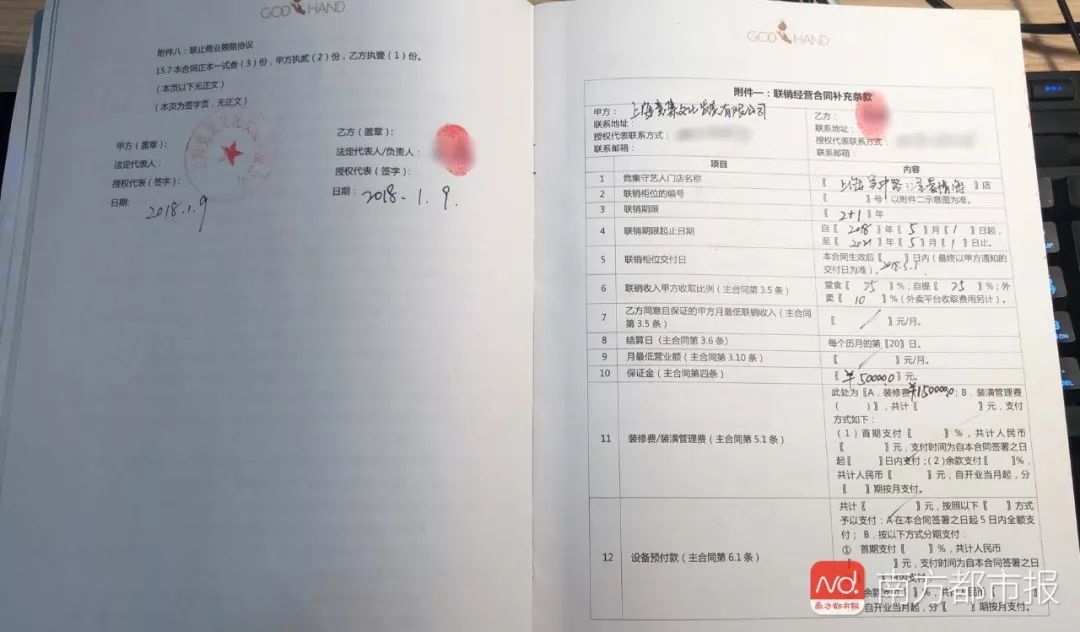 GOD HAND
附件八：禁止商业贿赂协议
15.7 本合同正本一式叁（3）份，甲方执贰（2）份，乙方执壹（1）份。
（本页以下无正文）
（本页为签字页，无正文）
甲方（盖章）：
法定代表人：
授权代表（签字）：
日期：
2018.1.9
乙方（盖章）：
法定代表人/负责人：
授权代表（签字）：
日期：2018.1.9.
GOD HAND
附件一：联销经营合同补充条款
甲方：上海 文化发展有限公司
联系地址：
授权代表联系方式：
联系邮箱：
乙方：
联系地址：
授权代表联系方式：
联系邮箱：
项目 内容
1 竞集守艺人门店名称 〖上海 〗店
2 联销柜位的编号 〖 〗号；以附件二示意图为准。
3 联销期限 〖2+1〗年
4 联销期限起止日期 自〖2018〗年〖5〗月〖1〗日起，
至〖2021〗年〖5〗月〖1〗日止。
5 联销柜位交付日 本合同生效后〖 〗日内（最终以甲方通知的
交付日为准）。2018.5.1
6 联销收入甲方收取比例（主合同第 3.5 条） 堂食〖75〗%；自提〖75〗%；外
卖〖10〗%（外卖平台收取费用另计）。
7 乙方同意且保证的甲方月最低联销收入（主合同
第 3.5 条） 〖 〗元/月。
8 结算日（主合同第 3.6 条） 每个历月的第〖20〗日。
9 月最低营业额（主合同第 3.10 条） 〖 〗元/月。
10 保证金（主合同第四条） 〖¥50000.0〗元。
11 装修费/装潢管理费（主合同第 5.1 条） 此处为〖A．装修费¥150000.0；B．装潢管理费
（ ）〗，共计〖 〗元，支付
方式如下：
（1）首期支付〖 〗%，共计人民币
〖 〗元，支付时间为自本合同签署之日
起〖 〗日内支付；（2）余款支付〖 〗%，
共计人民币〖 〗元，自开业当月起，分
〖 〗期按月支付。
12 设备预付款（主合同第 6.1 条） 共计〖 〗元，按照以下〖 〗方式
予以支付：A．在本合同签署之日起 5 日内全额支
付；B．按以下方式分期支付：
① 首期支付〖 〗%，共计人民币
〖 〗元，支付时间为自本合同签署之日
日内支付
余款支付〖 〗%，共计人民币
〖 〗元，自开业当月起，分〖 〗期按月支付。
Nd.
南方都市报
南方都市报